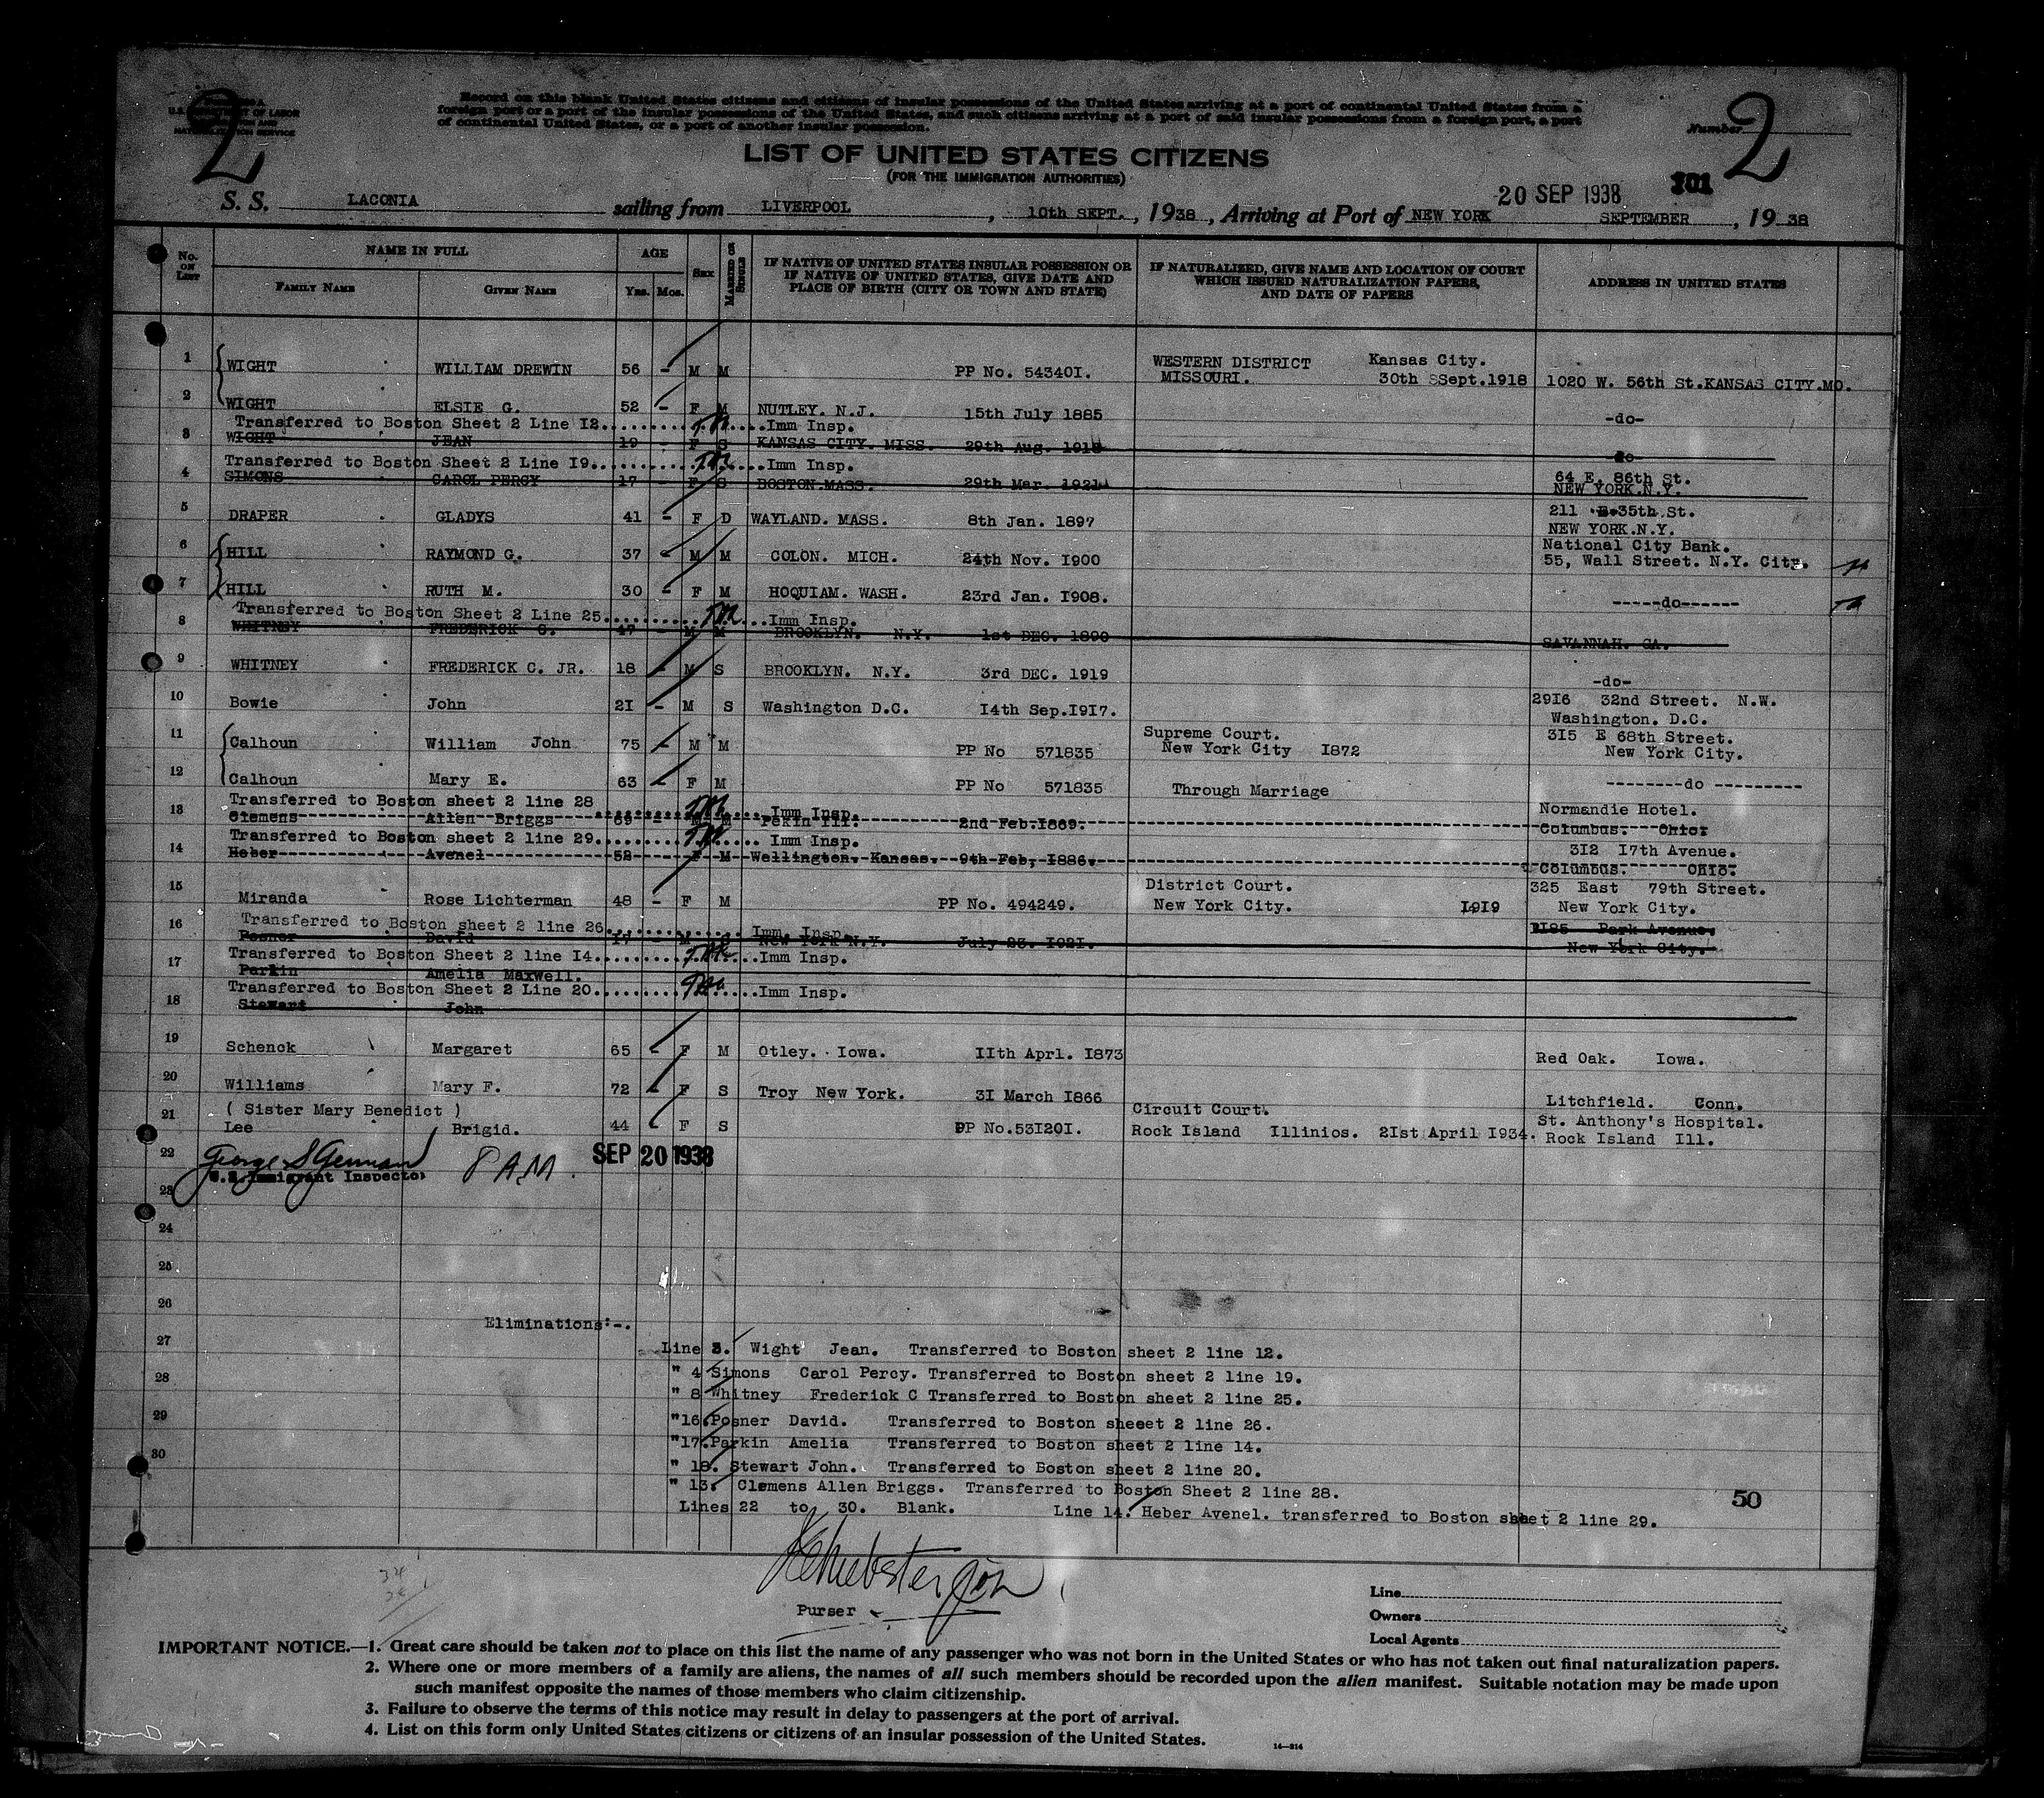 2
U.S. DEPARTMENT OF LABOR
NATURALIZATION SERVICE
Record on this blank United States citizens and citizens of insular possessions of the United States arriving at a port of continental United States from a
foreign port or a port of the insular possessions of the United States, and such citizens arriving at a port of said insular possessions from a foreign port, a port
of continental United States, or a port of another insular possession.
Number 2
LIST OF UNITED STATES CITIZENS
(FOR THE IMMIGRATION AUTHORITIES)
20 SEP 1938 201
S. S. LACONIA sailing from LIVERPOOL, 10th SEPT., 1938, Arriving at Port of NEW YORK SEPTEMBER, 1938
No. on List
NAME IN FULL
Family Name Given Name
AGE
Yrs. Mos.
Sex
Married or Single
IF NATIVE OF UNITED STATES INSULAR POSSESSION OR
IF NATIVE OF UNITED STATES, GIVE DATE AND
PLACE OF BIRTH (CITY OR TOWN AND STATE)
IF NATURALIZED, GIVE NAME AND LOCATION OF COURT
WHICH ISSUED NATURALIZATION PAPERS,
AND DATE OF PAPERS
ADDRESS IN UNITED STATES
1 WIGHT WILLIAM DREWIN 56 - M M PP No. 543401. WESTERN DISTRICT Kansas City.
MISSOURI. 30th SSept.1918 1020 W. 56th St.KANSAS CITY.MO.
2 WIGHT ELSIE G. 52 - F M NUTLEY. N.J. 15th July 1885 -do-
Transferred to Boston Sheet 2 Line 12. Imm Insp.
3 WIGHT JEAN 19 - F S KANSAS CITY. MISS. 29th Aug. 1918 -do-
Transferred to Boston Sheet 2 Line 19. Imm Insp.
4 SIMONS CAROL PERCY 17 - F S BOSTON.MASS. 29th Mar. 1921 64 E. 86th St.
NEW YORK.N.Y.
5 DRAPER GLADYS 41 - F D WAYLAND. MASS. 8th Jan. 1897 211 E.35th St.
NEW YORK.N.Y.
6 HILL RAYMOND G. 37 - M M COLON. MICH. 24th Nov. 1900 National City Bank.
55, Wall Street. N.Y. City.
7 HILL RUTH M. 30 - F M HOQUIAM. WASH. 23rd Jan. 1908. -----do------
Transferred to Boston Sheet 2 Line 25. Imm Insp.
8 WHITNEY FREDERICK C. 47 - M M BROOKLYN. N.Y. 1st DEC. 1890 SAVANNAH. GA.
9 WHITNEY FREDERICK C. JR. 18 - M S BROOKLYN. N.Y. 3rd DEC. 1919 -do-
10 Bowie John 21 - M S Washington D.C. 14th Sep.1917. 2916 32nd Street. N.W.
Washington. D.C.
11 Calhoun William John 75 - M M PP No 571835 Supreme Court.
New York City 1872 315 E 68th Street.
New York City.
12 Calhoun Mary E. 63 - F M PP No 571835 Through Marriage --------do ---------
Transferred to Boston sheet 2 line 28 Imm Insp.
13 Clemens Allen Briggs 69 - M M Pekin Ill. 2nd Feb.1869. Normandie Hotel.
Columbus. Ohio.
Transferred to Boston sheet 2 line 29. Imm Insp.
14 Heber Avenel 52 - F M Wellington. Kansas. 9th Feb, 1886. 312 17th Avenue.
Columbus. Ohio.
15 Miranda Rose Lichterman 48 - F M PP No. 494249. District Court.
New York City. 1919 325 East 79th Street.
New York City.
Transferred to Boston sheet 2 line 26 Imm. Insp.
16 Posner David 17 - M S New York N.Y. July 23. 1021. 1185 Park Avenue.
New York City.
Transferred to Boston Sheet 2 line 14. Imm Insp.
17 Parkin Amelia Maxwell.
Transferred to Boston Sheet 2 Line 20. Imm Insp.
18 Stewart John
19 Schenck Margaret 65 - F M Otley. Iowa. 11th Aprl. 1873 Red Oak. Iowa.
20 Williams Mary F. 72 - F S Troy New York. 31 March 1866 Litchfield. Conn.
( Sister Mary Benedict )
21 Lee Brigid. 44 F S PP No.531201. Circuit Court.
Rock Island Illinios. 21st April 1934. St. Anthony's Hospital.
Rock Island Ill.
22 George S German 8 AM. SEP 20 1938
U.S. Immigrant Inspector
23
24
25
26
Eliminations:-.
27 Line 3. Wight Jean. Transferred to Boston sheet 2 line 12.
28 " 4 Simons Carol Percy. Transferred to Boston sheet 2 line 19.
" 8 Whitney Frederick C Transferred to Boston sheet 2 line 25.
29 "16.Posner David. Transferred to Boston sheeet 2 line 26.
"17.Parkin Amelia Transferred to Boston sheet 2 line 14.
30 " 18. Stewart John. Transferred to Boston sheet 2 line 20.
" 13. Clemens Allen Briggs. Transferred to Boston Sheet 2 line 28.
Lines 22 to 30. Blank. Line 14. Heber Avenel. transferred to Boston sheet 2 line 29.
50
Purser
Line
Owners
Local Agents
IMPORTANT NOTICE.—1. Great care should be taken not to place on this list the name of any passenger who was not born in the United States or who has not taken out final naturalization papers.
2. Where one or more members of a family are aliens, the names of all such members should be recorded upon the alien manifest. Suitable notation may be made upon
such manifest opposite the names of those members who claim citizenship.
3. Failure to observe the terms of this notice may result in delay to passengers at the port of arrival.
4. List on this form only United States citizens or citizens of an insular possession of the United States.
14—314